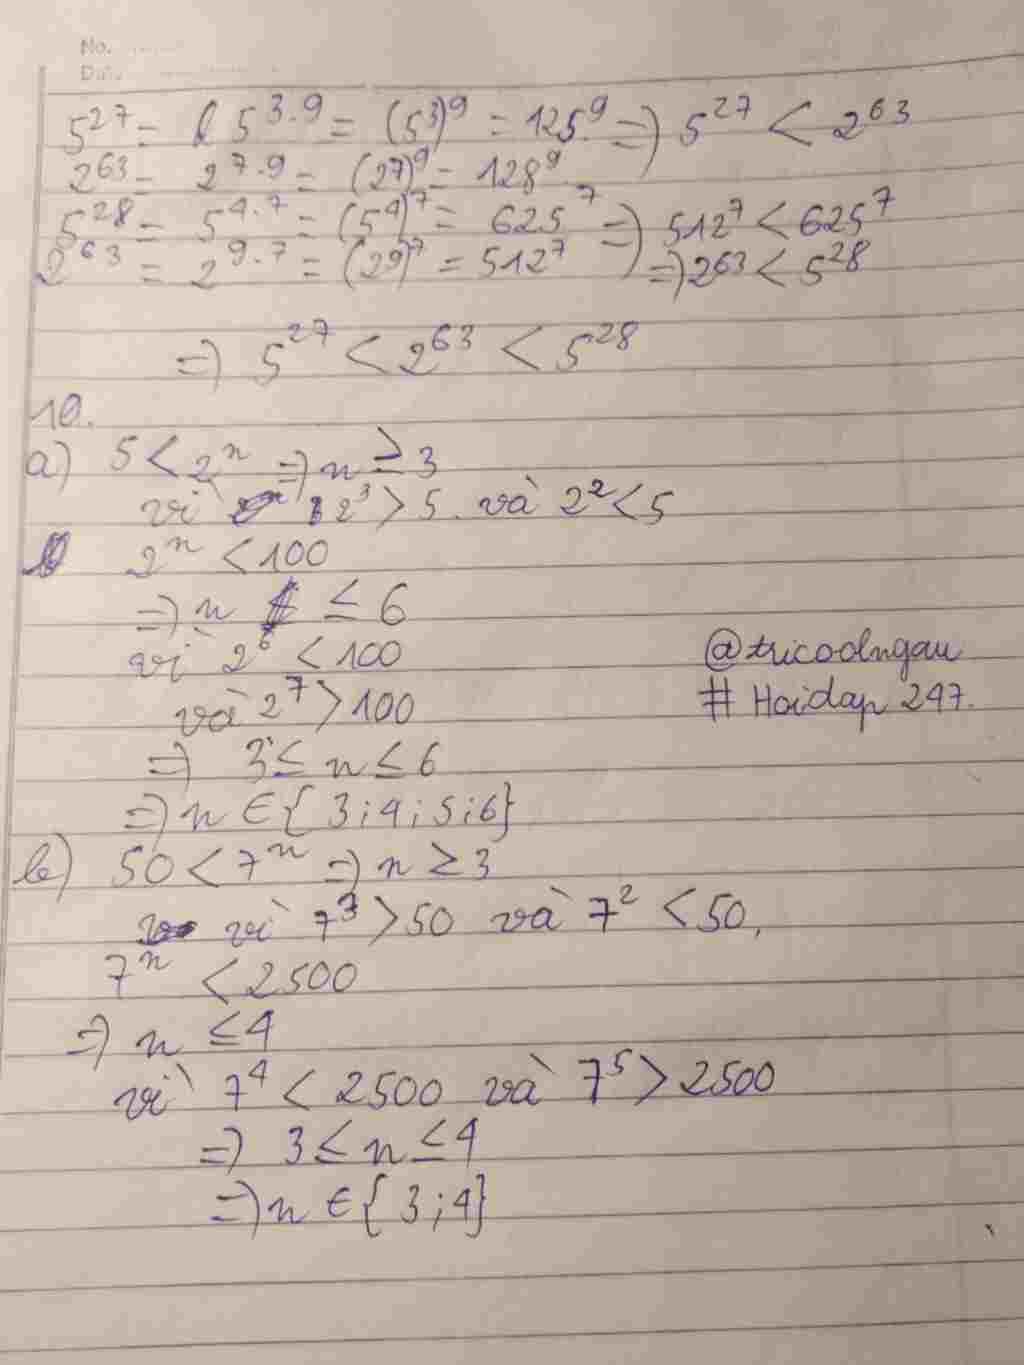 No.
5²⁷ = 5³·⁹ = (5³)⁹ = 125⁹ => 5²⁷ < 2⁶³
2⁶³ = 2⁷·⁹ = (27)⁹ = 128⁹
5²⁸ = 5⁴·⁷ = (5⁴)⁷ = 625⁷ => 512⁷ < 625⁷
2⁶³ = 2⁹·⁷ = (29)⁷ = 512⁷ => 2⁶³ < 5²⁸
=> 5²⁷ < 2⁶³ < 5²⁸
10.
a) 5 < 2ⁿ => n ≥ 3
vì 2³ > 5. và 2² < 5
2ⁿ < 100
=> n ≤ 6
vì 2⁶ < 100
và 2⁷ > 100
@tricodngau
# Hoidap 247.
=> 3 ≤ n ≤ 6
=> n ∈ { 3 ; 4 ; 5 ; 6 }
b) 50 < 7ⁿ => n ≥ 3
vì 7³ > 50 và 7² < 50.
7ⁿ < 2500
=> n ≤ 4
vì 7⁴ < 2500 và 7⁵ > 2500
=> 3 ≤ n ≤ 4
=> n ∈ { 3 ; 4 }